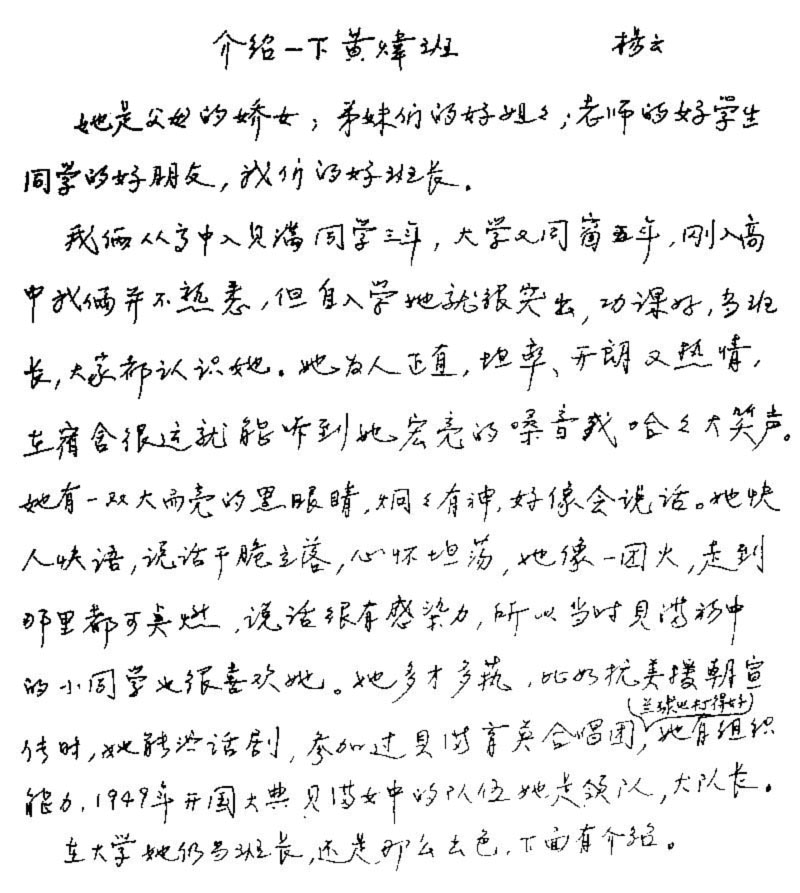 介绍一下黄煒班 杨云
她是父母的娇女；弟妹们的好姐々；老师的好学生
同学的好朋友，我们的好班长。
我俩从高中入贝满同学三年，大学又同窗五年，刚入高
中我俩并不熟悉，但自入学她就很突出，功课好，当班
长，大家都认识她。她为人正直，坦率、开朗又热情，
在宿舍很远就能听到她宏亮的嗓音或哈々大笑声。
她有一双大而亮的黑眼睛，炯々有神，好像会说话。她快
人快语，说话干脆立落，心怀坦荡，她像一团火，走到
那里都可点燃，说话很有感染力，所以当时贝满初中
的小同学也很喜欢她。她多才多艺，比如抗美援朝宣
(兰球也打得好)
传时，她能演话剧，参加过贝满育英合唱团，她有组织
能力，1949年开国大典贝满女中的队伍她是领队，大队长。
在大学她仍当班长，还是那么出色，下面有介绍。